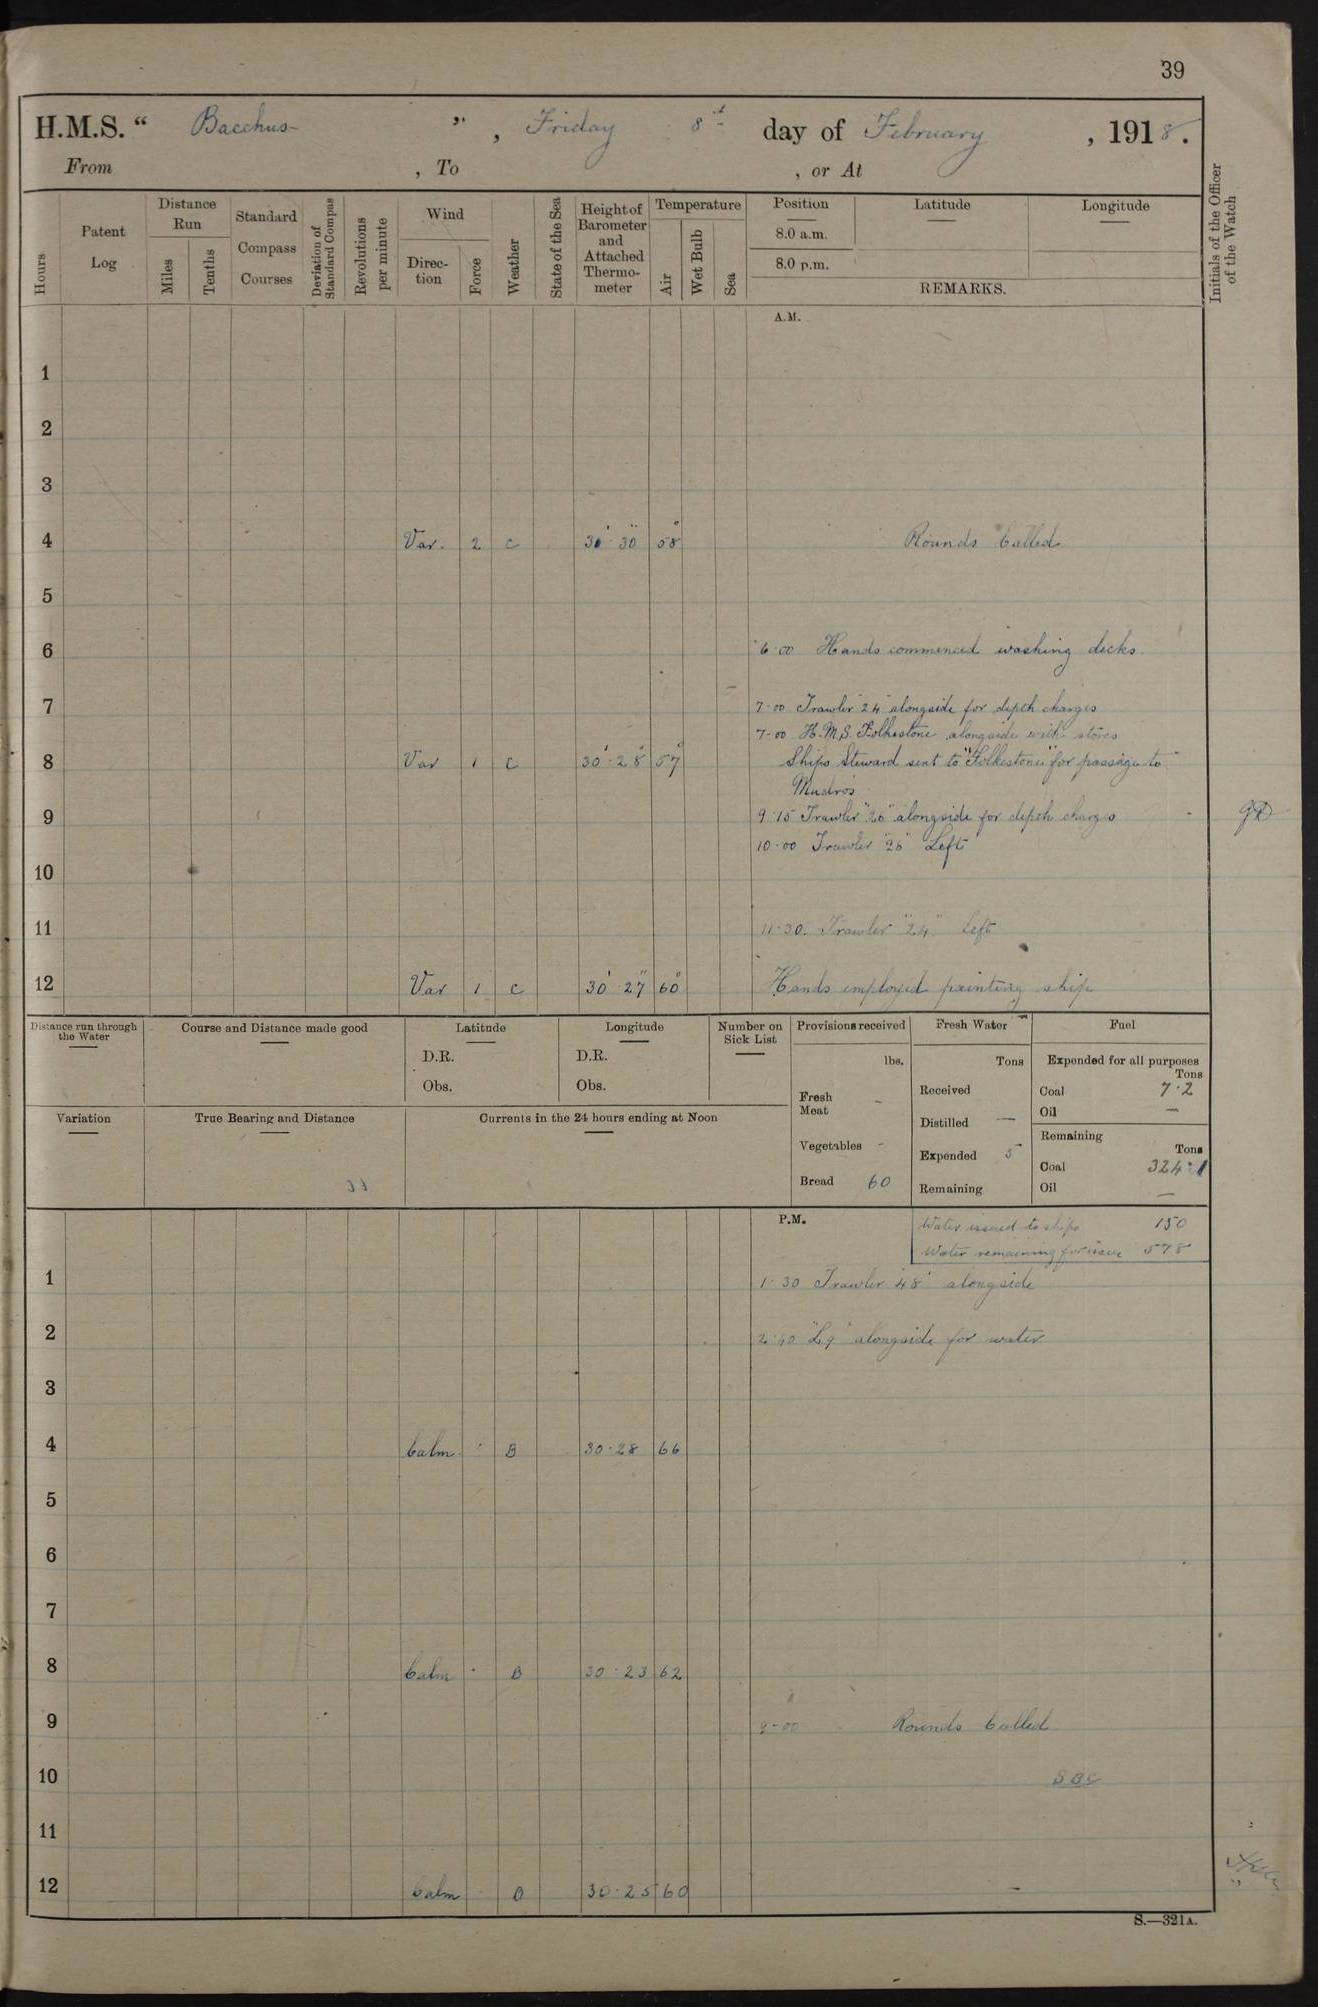 39
H.M.S. “ Bacchus ” , Friday 8th day of February , 1918.
From , To , or At
Hours
Patent Log
Distance Run
Miles
Tenths
Standard Compass Courses
Deviation of Standard Compass
Revolutions per minute
Wind
Direc-tion
Force
Weather
State of the Sea
Height of Barometer and Attached Thermo-meter
Temperature
Air
Wet Bulb
Sea
Position
8.0 a.m.
8.0 p.m.
Latitude
Longitude
REMARKS.
Initials of the Officer of the Watch
A.M.
1
2
3
4 Var. 2 c 30·30 58 Rounds Called
5
6 6·00 Hands commenced washing decks
7 7-00 Trawler 24 alongside for depth charges
7-00 H.M.S. Folkestone alongside with stores
8 Var 1 c 30·28 57 Ships Steward sent to "Folkestone" for passage to
Mudros
9 9·15 Trawler "26" alongside for depth charges
10·00 Trawler "26" Left
10
11 11·30. Trawler "24" Left
12 Var 1 c 30·27 60 Hands employed painting ship
Distance run through the Water
Course and Distance made good
Latitude
D.R.
Obs.
Longitude
D.R.
Obs.
Number on Sick List
Variation
True Bearing and Distance
Currents in the 24 hours ending at Noon
Provisions received
lbs.
Fresh Meat -
Vegetables -
Bread 60
Fresh Water
Tons
Received
Distilled —
Expended 5
Remaining
Fuel
Expended for all purposes
Tons
Coal 7·2
Oil —
Remaining
Tons
Coal 324·1
Oil —
P.M.
Water issued to ships 150
Water remaining for issue 578
1 1·30 Trawler 48 alongside
2 2·40 "L9" alongside for water
3
4 Calm · B 30·28 66
5
6
7
8 Calm · B 30·23 62
9 9-00 Rounds Called
10 SBC
11
12 Calm · B 30·25 60
S.—321A.